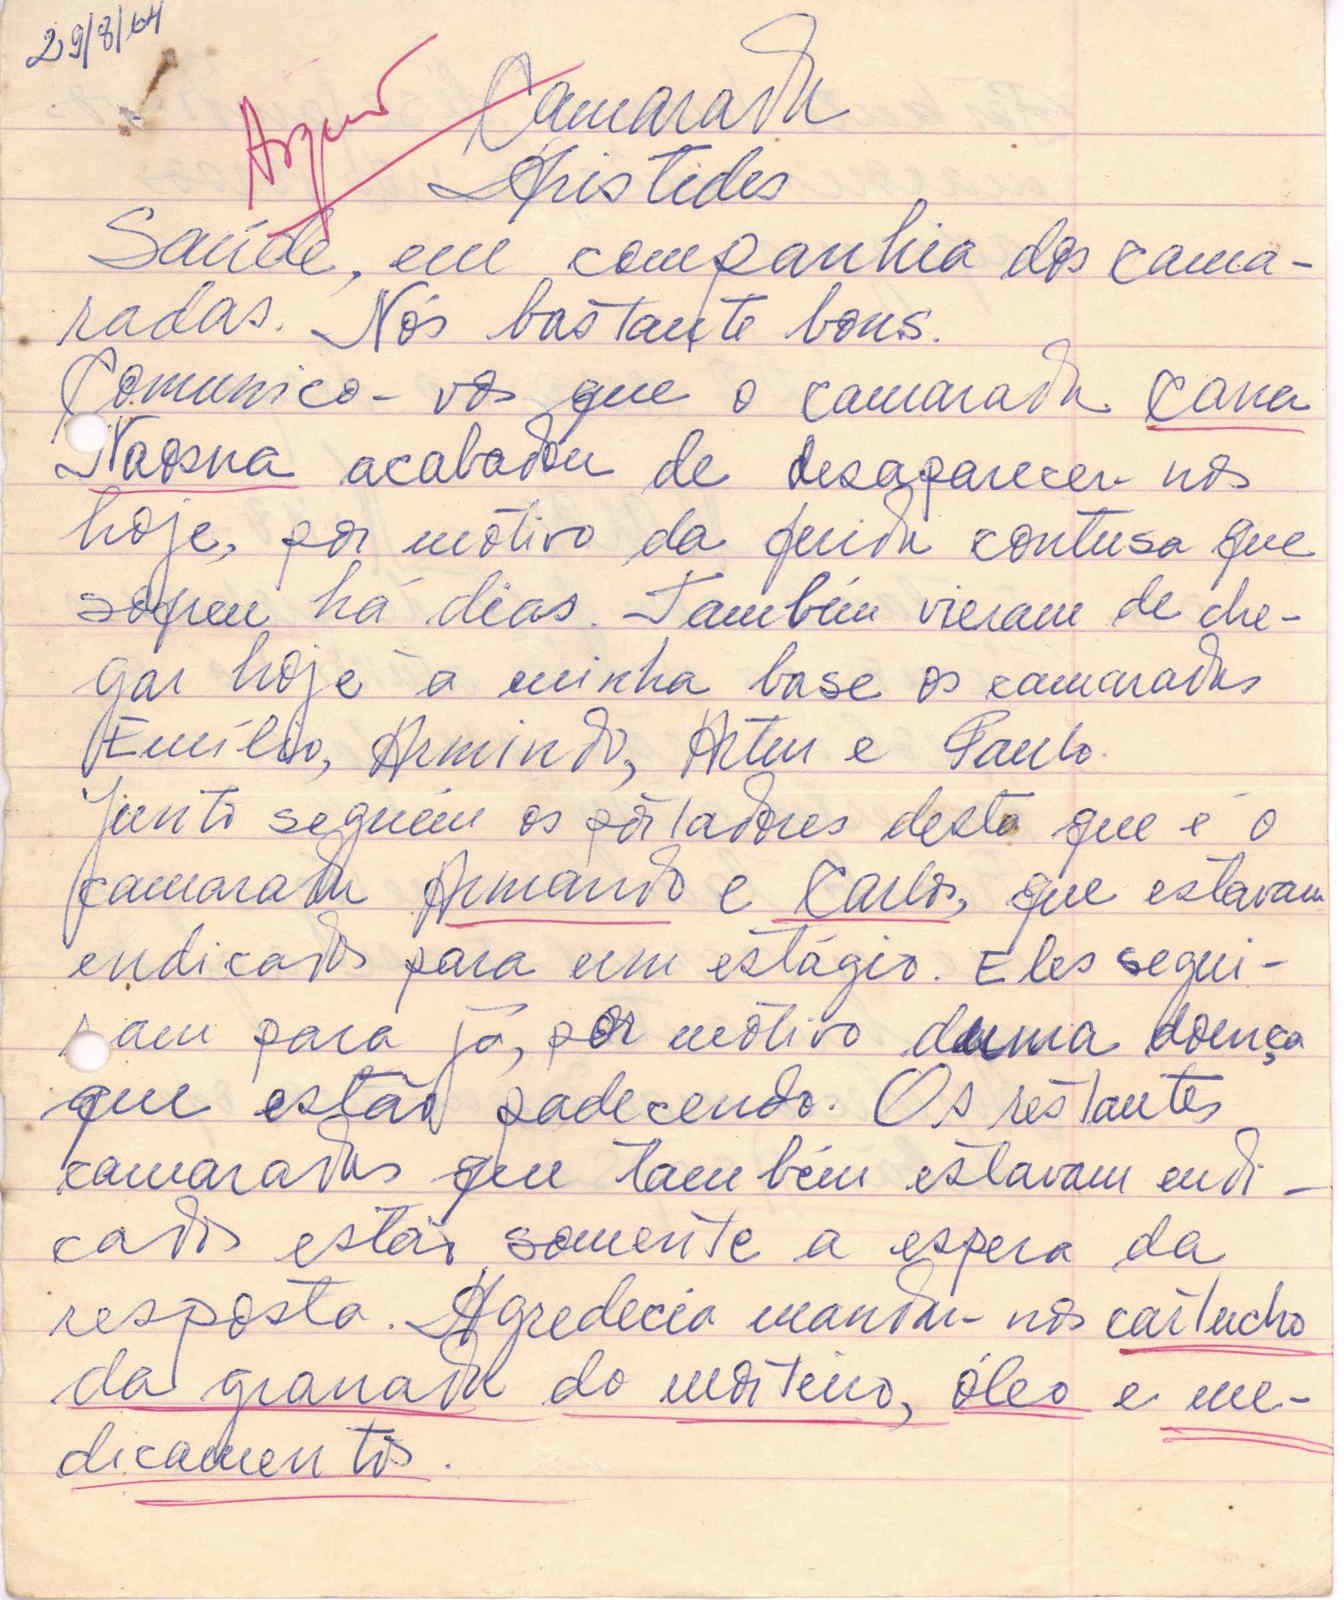 29/8/64
Camarada
Aristides
Saúde, em companhia dos cama-
radas. Nós bastante bons.
Comunico-vos que o camarada Cana
Naosna acabadou de desaparecer-nos
hoje, por motivo da ferida contusa que
sofreu há dias. Também vieram de che-
gar hoje à minha base os camaradas
Emílio, Armindo, Artur e Paulo.
Junto seguém os pórtadores desta que é o
camarada Armando e Carlos, que estavam
endicados para um estágio. Eles segui-
ram para já, por motivo duma doença
que estão padecendo. Os restantes
camaradas que também estavam endi-
cados estão somente a espera da
resposta. Agredecia mandar-nos cartucho
da granada do morteiro, óleo e me-
dicamentos.